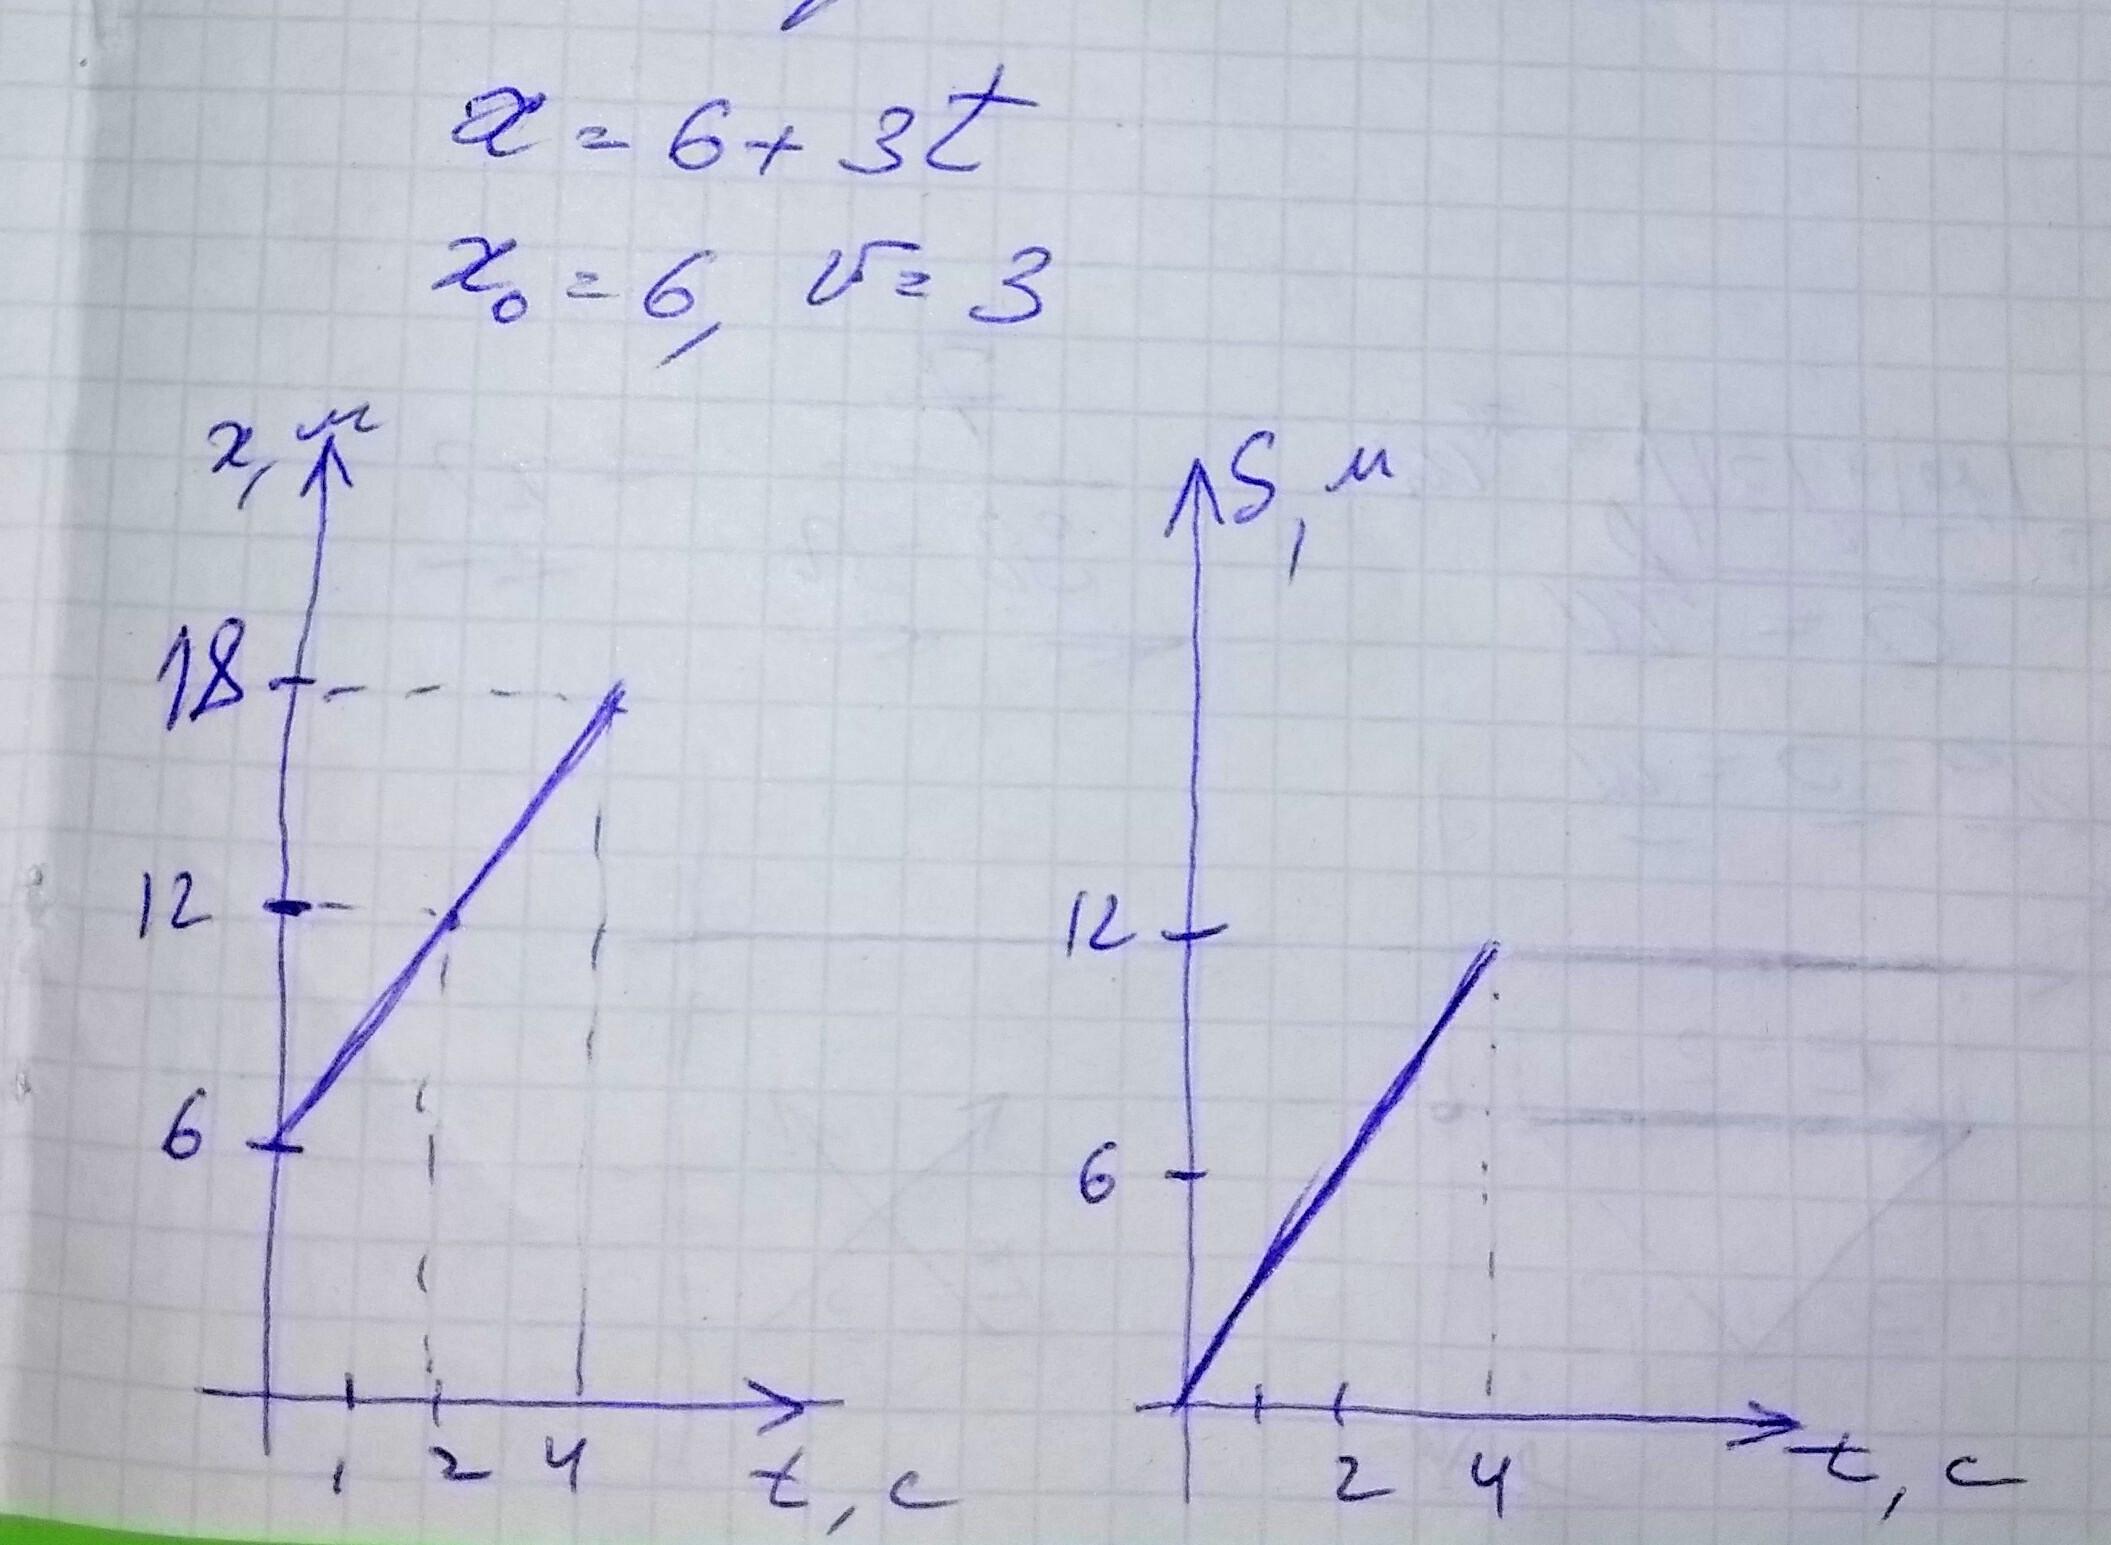 x = 6 + 3t
x₀ = 6, v = 3
x, м
18
12
6
1 2 4 t, с
S, м
12
6
2 4 t, с